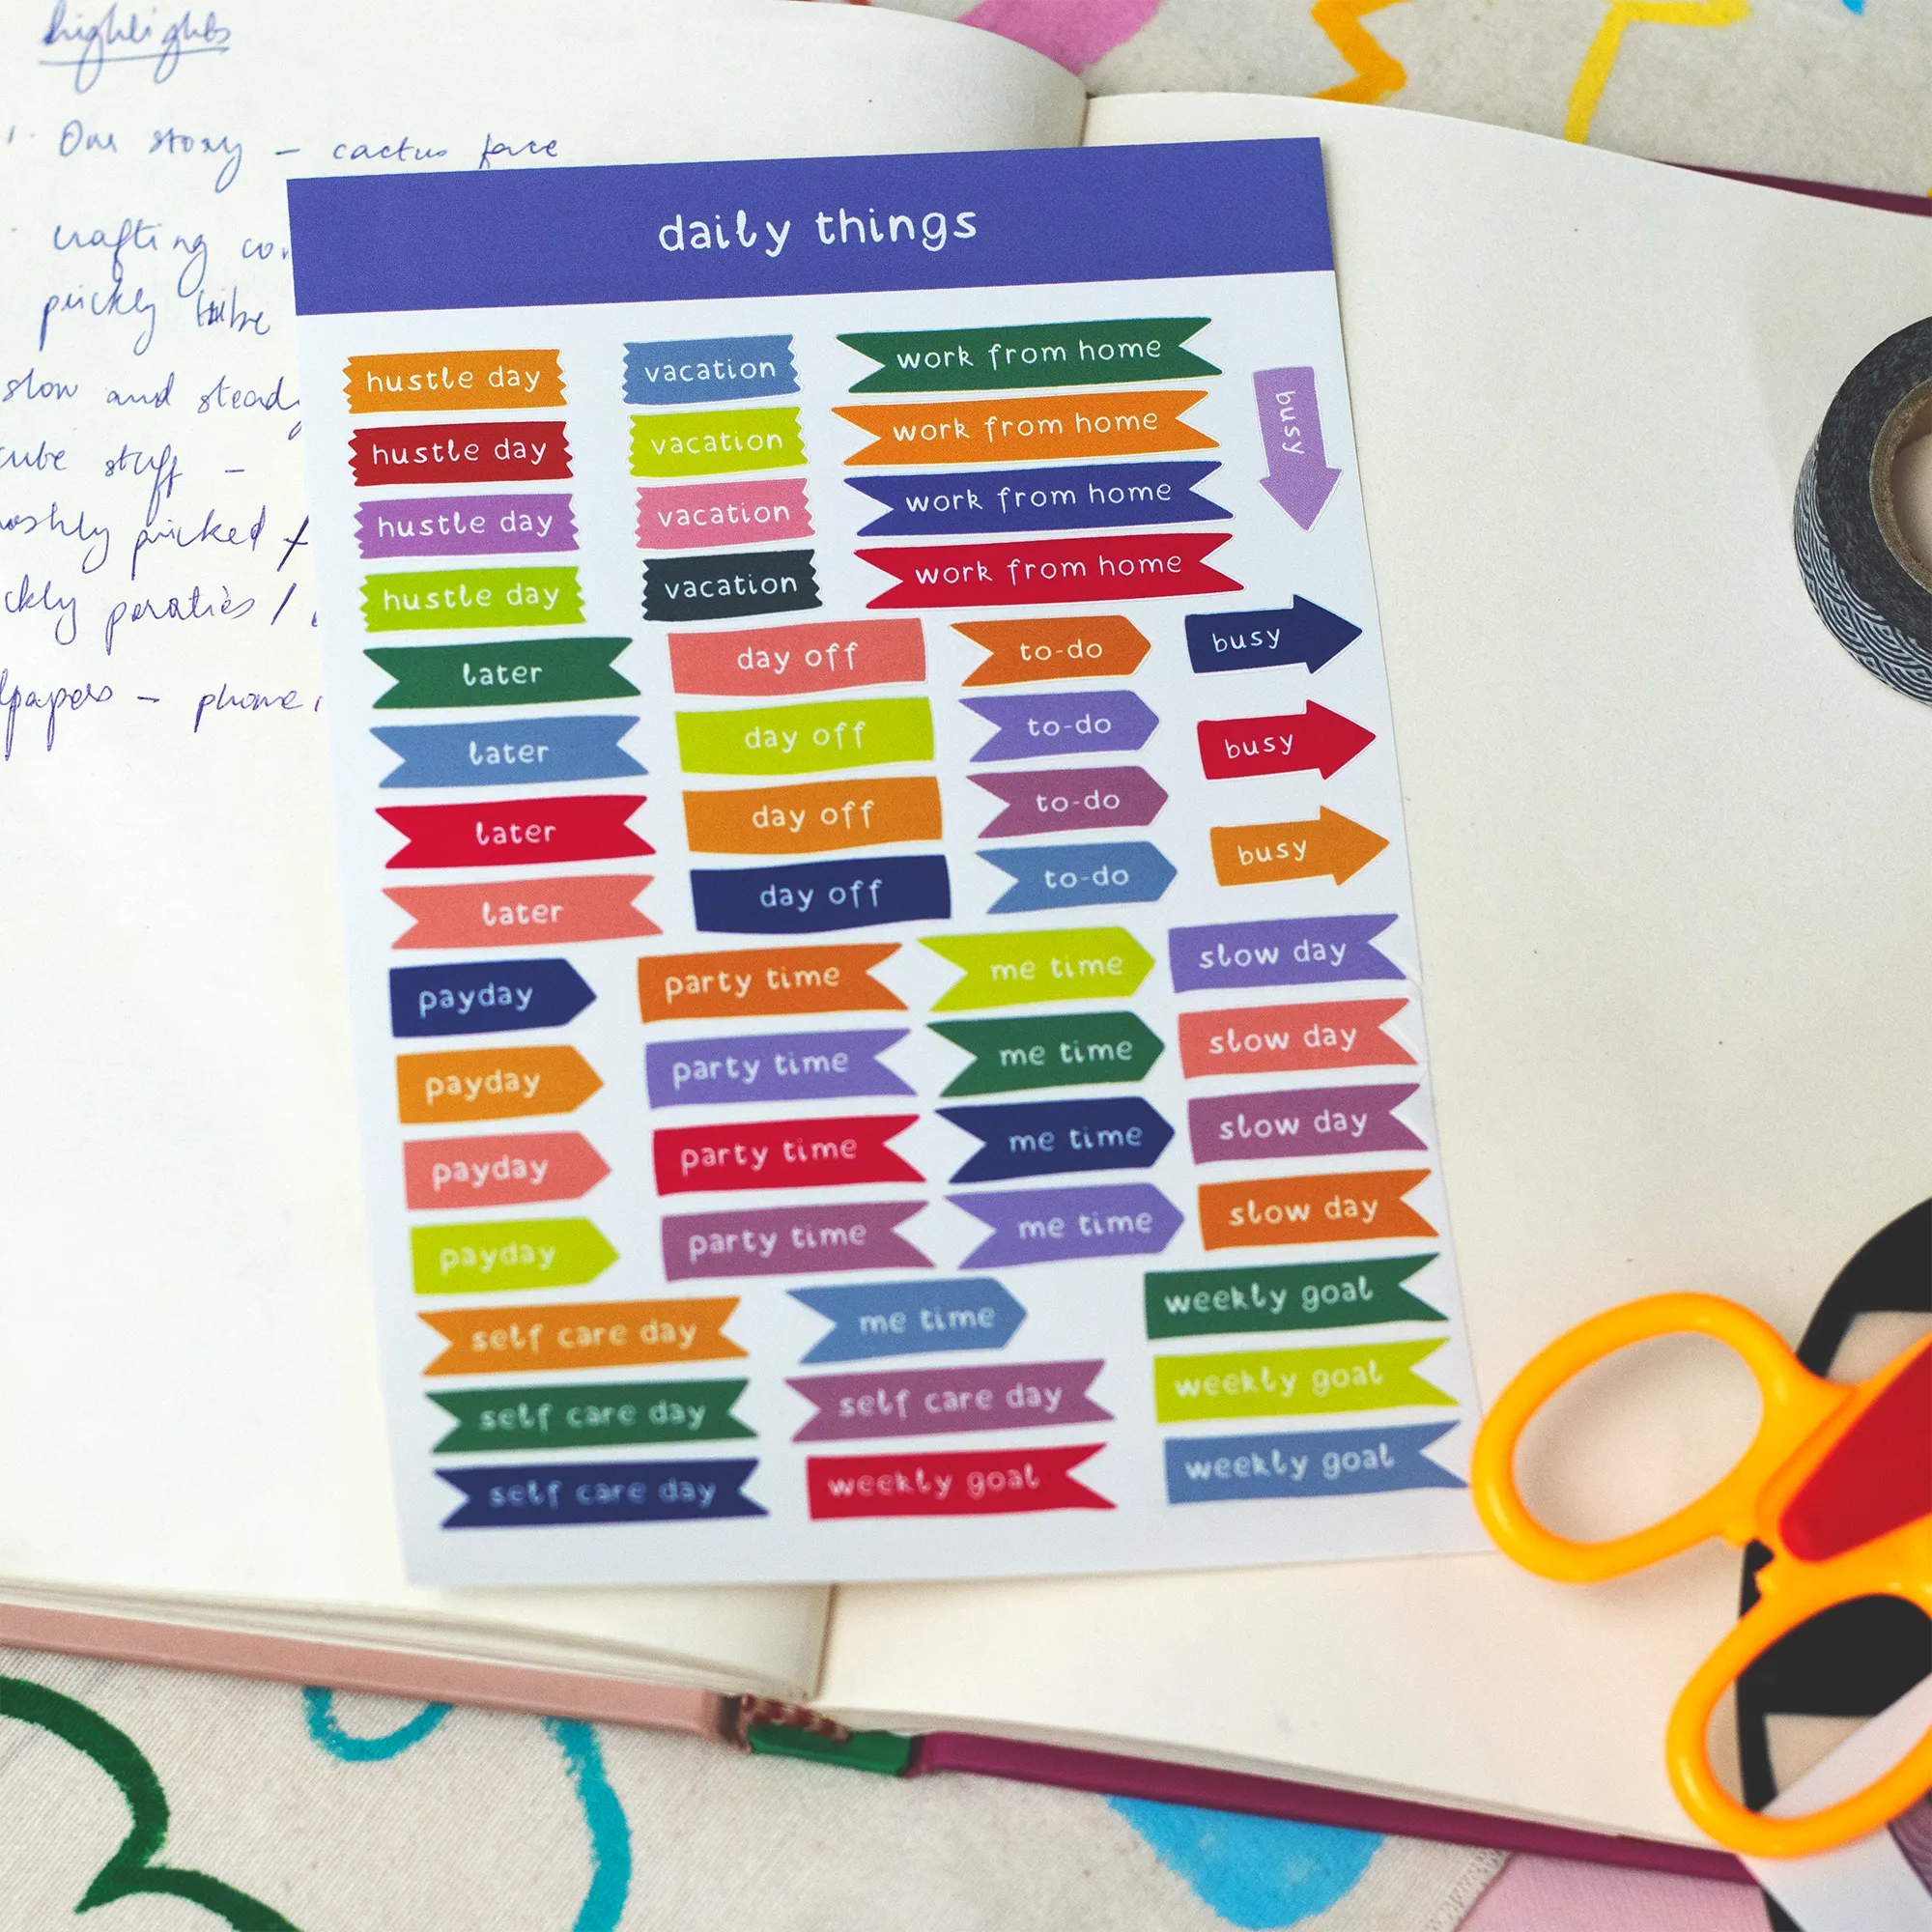 highlights
1. One story - cactus face
crafting
prickly tribe
slow and steady
cute stuff -
pricked
- phone
daily things
hustle day
vacation
work from home
busy
hustle day
vacation
work from home
hustle day
vacation
work from home
hustle day
vacation
work from home
later
day off
to-do
busy
later
day off
to-do
busy
later
day off
to-do
busy
later
day off
to-do
payday
party time
me time
slow day
payday
party time
me time
slow day
payday
party time
me time
slow day
payday
party time
me time
slow day
self care day
me time
weekly goal
self care day
self care day
weekly goal
self care day
weekly goal
weekly goal